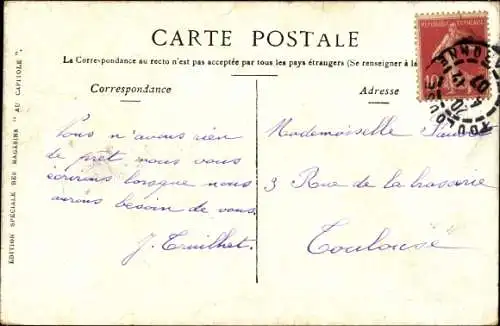 CARTE POSTALE
La Correspondance au recto n'est pas acceptée par tous les pays étrangers (Se renseigner à la
Correspondance
Adresse
Vous n'avons rien
de prêt nous vous
écrirons lorsque nous
aurons besoin de vous.
J. Truilhet.
Mademoiselle
3 Rue de la brasserie
Toulouse
ÉDITION SPÉCIALE DES MAGASINS "AU CAPITOLE".
REPUBLIQUE FRANÇAISE
10